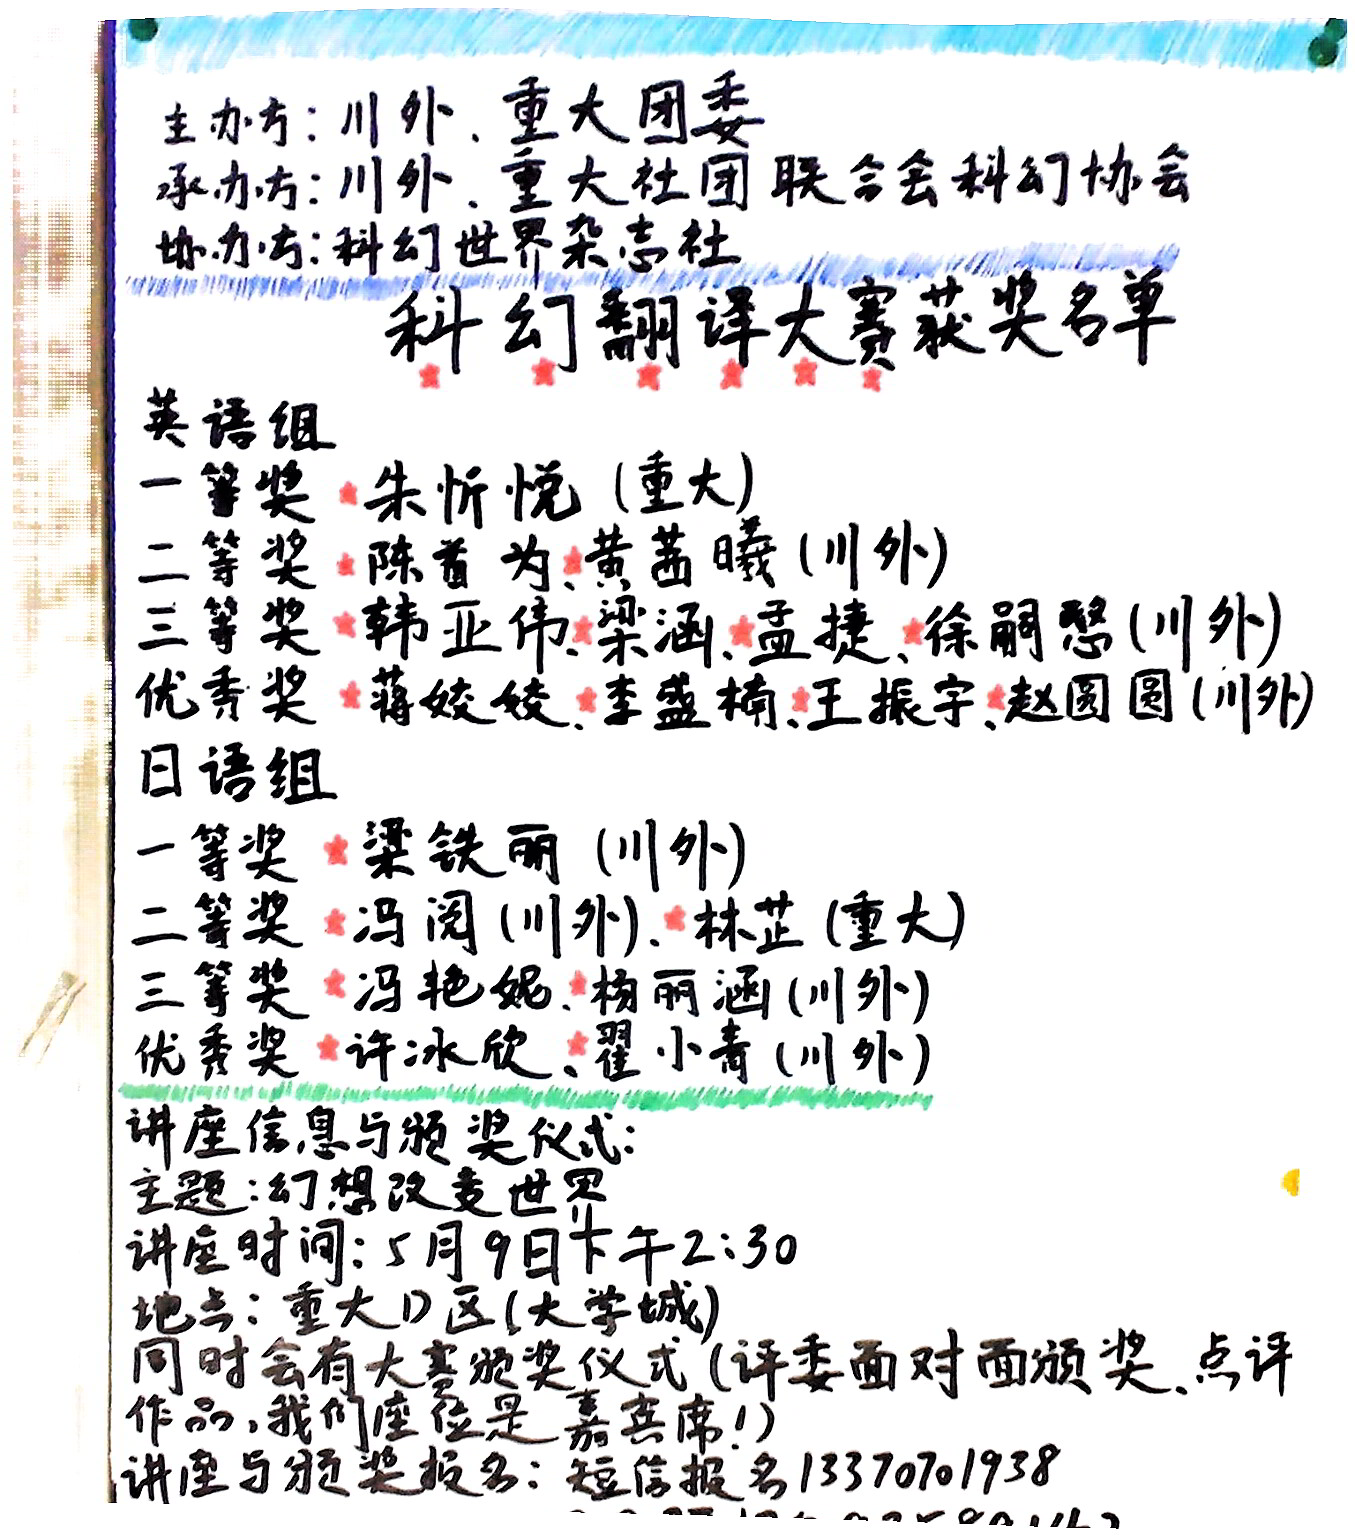 主办方：川外、重大团委
承办方：川外、重大社团联合会科幻协会
协办方：科幻世界杂志社
科幻翻译大赛获奖名单
英语组
一等奖 朱忻悦（重大）
二等奖 陈首为、黄茜曦（川外）
三等奖 韩亚伟、梁涵、孟捷、徐嗣愍（川外）
优秀奖 蒋姣姣、李盛楠、王振宇、赵圆圆（川外）
日语组
一等奖 梁铁丽（川外）
二等奖 冯阅（川外）、林芷（重大）
三等奖 冯艳妮、杨丽涵（川外）
优秀奖 许冰欣、翟小青（川外）
讲座信息与颁奖仪式：
主题：幻想改变世界
讲座时间：5月9日下午2:30
地点：重大D区（大学城）
同时会有大赛颁奖仪式（评委面对面颁奖、点评
作品，我们座位是嘉宾席！）
讲座与颁奖报名：短信报名13370701938